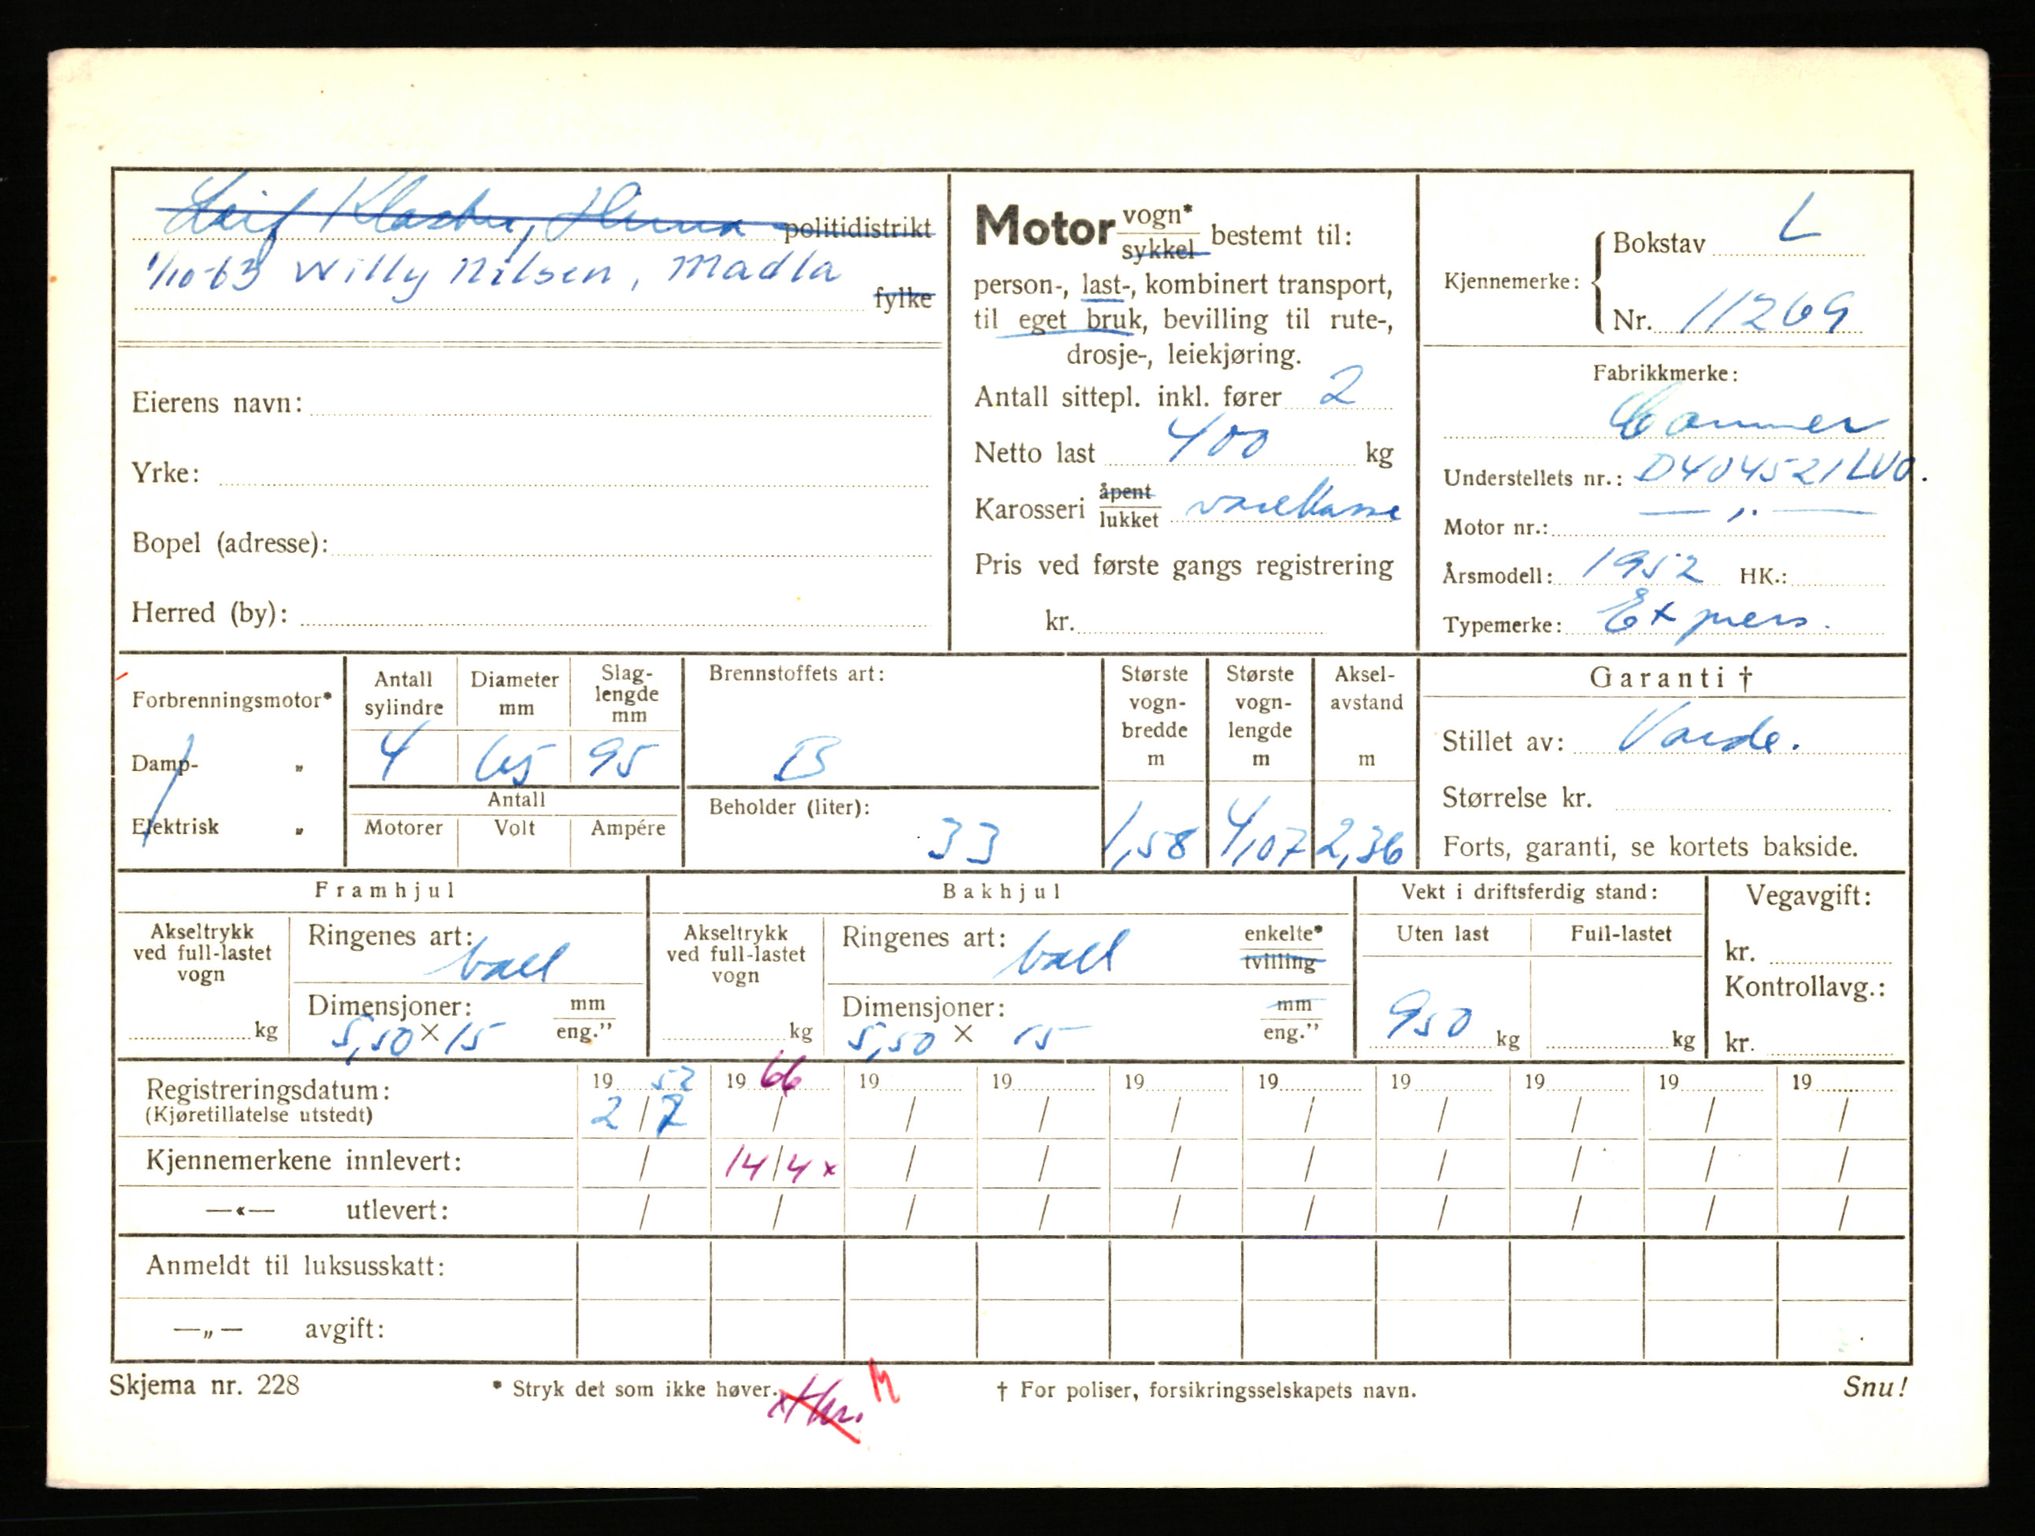 Leif Klaster, Hinna politidistrikt
1/10-63 Willy Nilsen, Madla
fylke
Eierens navn:
Yrke:
Bopel (adresse):
Herred (by):
Motor vogn* sykkel bestemt til:
person-, last-, kombinert transport,
til eget bruk, bevilling til rute-,
drosje-, leiekjøring.
Antall sittepl. inkl. fører 2
Netto last 400 kg
Karosseri åpent lukket varekasse
Pris ved første gangs registrering
kr.
Kjennemerke: Bokstav L
Nr. 11269
Fabrikkmerke:
Commer
Understellets nr.: D404521LVO.
Motor nr.: — „ —
Årsmodell: 1952 HK.:
Typemerke: Express.
Forbrenningsmotor*
Damp- „
Elektrisk „
Antall sylindre 4
Diameter mm 65
Slag-lengde mm 95
Antall
Motorer Volt Ampére
Brennstoffets art:
B
Beholder (liter):
33
Største vogn-bredde m 1,58
Største vogn-lengde m 4,07
Aksel-avstand m 2,36
Garanti †
Stillet av: Varde.
Størrelse kr.
Forts, garanti, se kortets bakside.
Framhjul
Akseltrykk ved full-lastet vogn
kg
Ringenes art: ball
Dimensjoner: mm eng."
5,50 × 15
Bakhjul
Akseltrykk ved full-lastet vogn
kg
Ringenes art: ball enkelte* tvilling
Dimensjoner: mm eng."
5,50 × 15
Vekt i driftsferdig stand:
Uten last Full-lastet
950 kg kg
Vegavgift:
kr.
Kontrollavg.:
kr.
Registreringsdatum: 19 52 19 66 19 19 19 19 19 19 19 19
(Kjøretillatelse utstedt) 2/7 / / / / / / / / /
Kjennemerkene innlevert: / 14/4 x / / / / / / / /
—«— utlevert: / / / / / / / / / /
Anmeldt til luksusskatt:
—„— avgift:
Skjema nr. 228
* Stryk det som ikke høver.
M
† For poliser, forsikringsselskapets navn.
Snu!